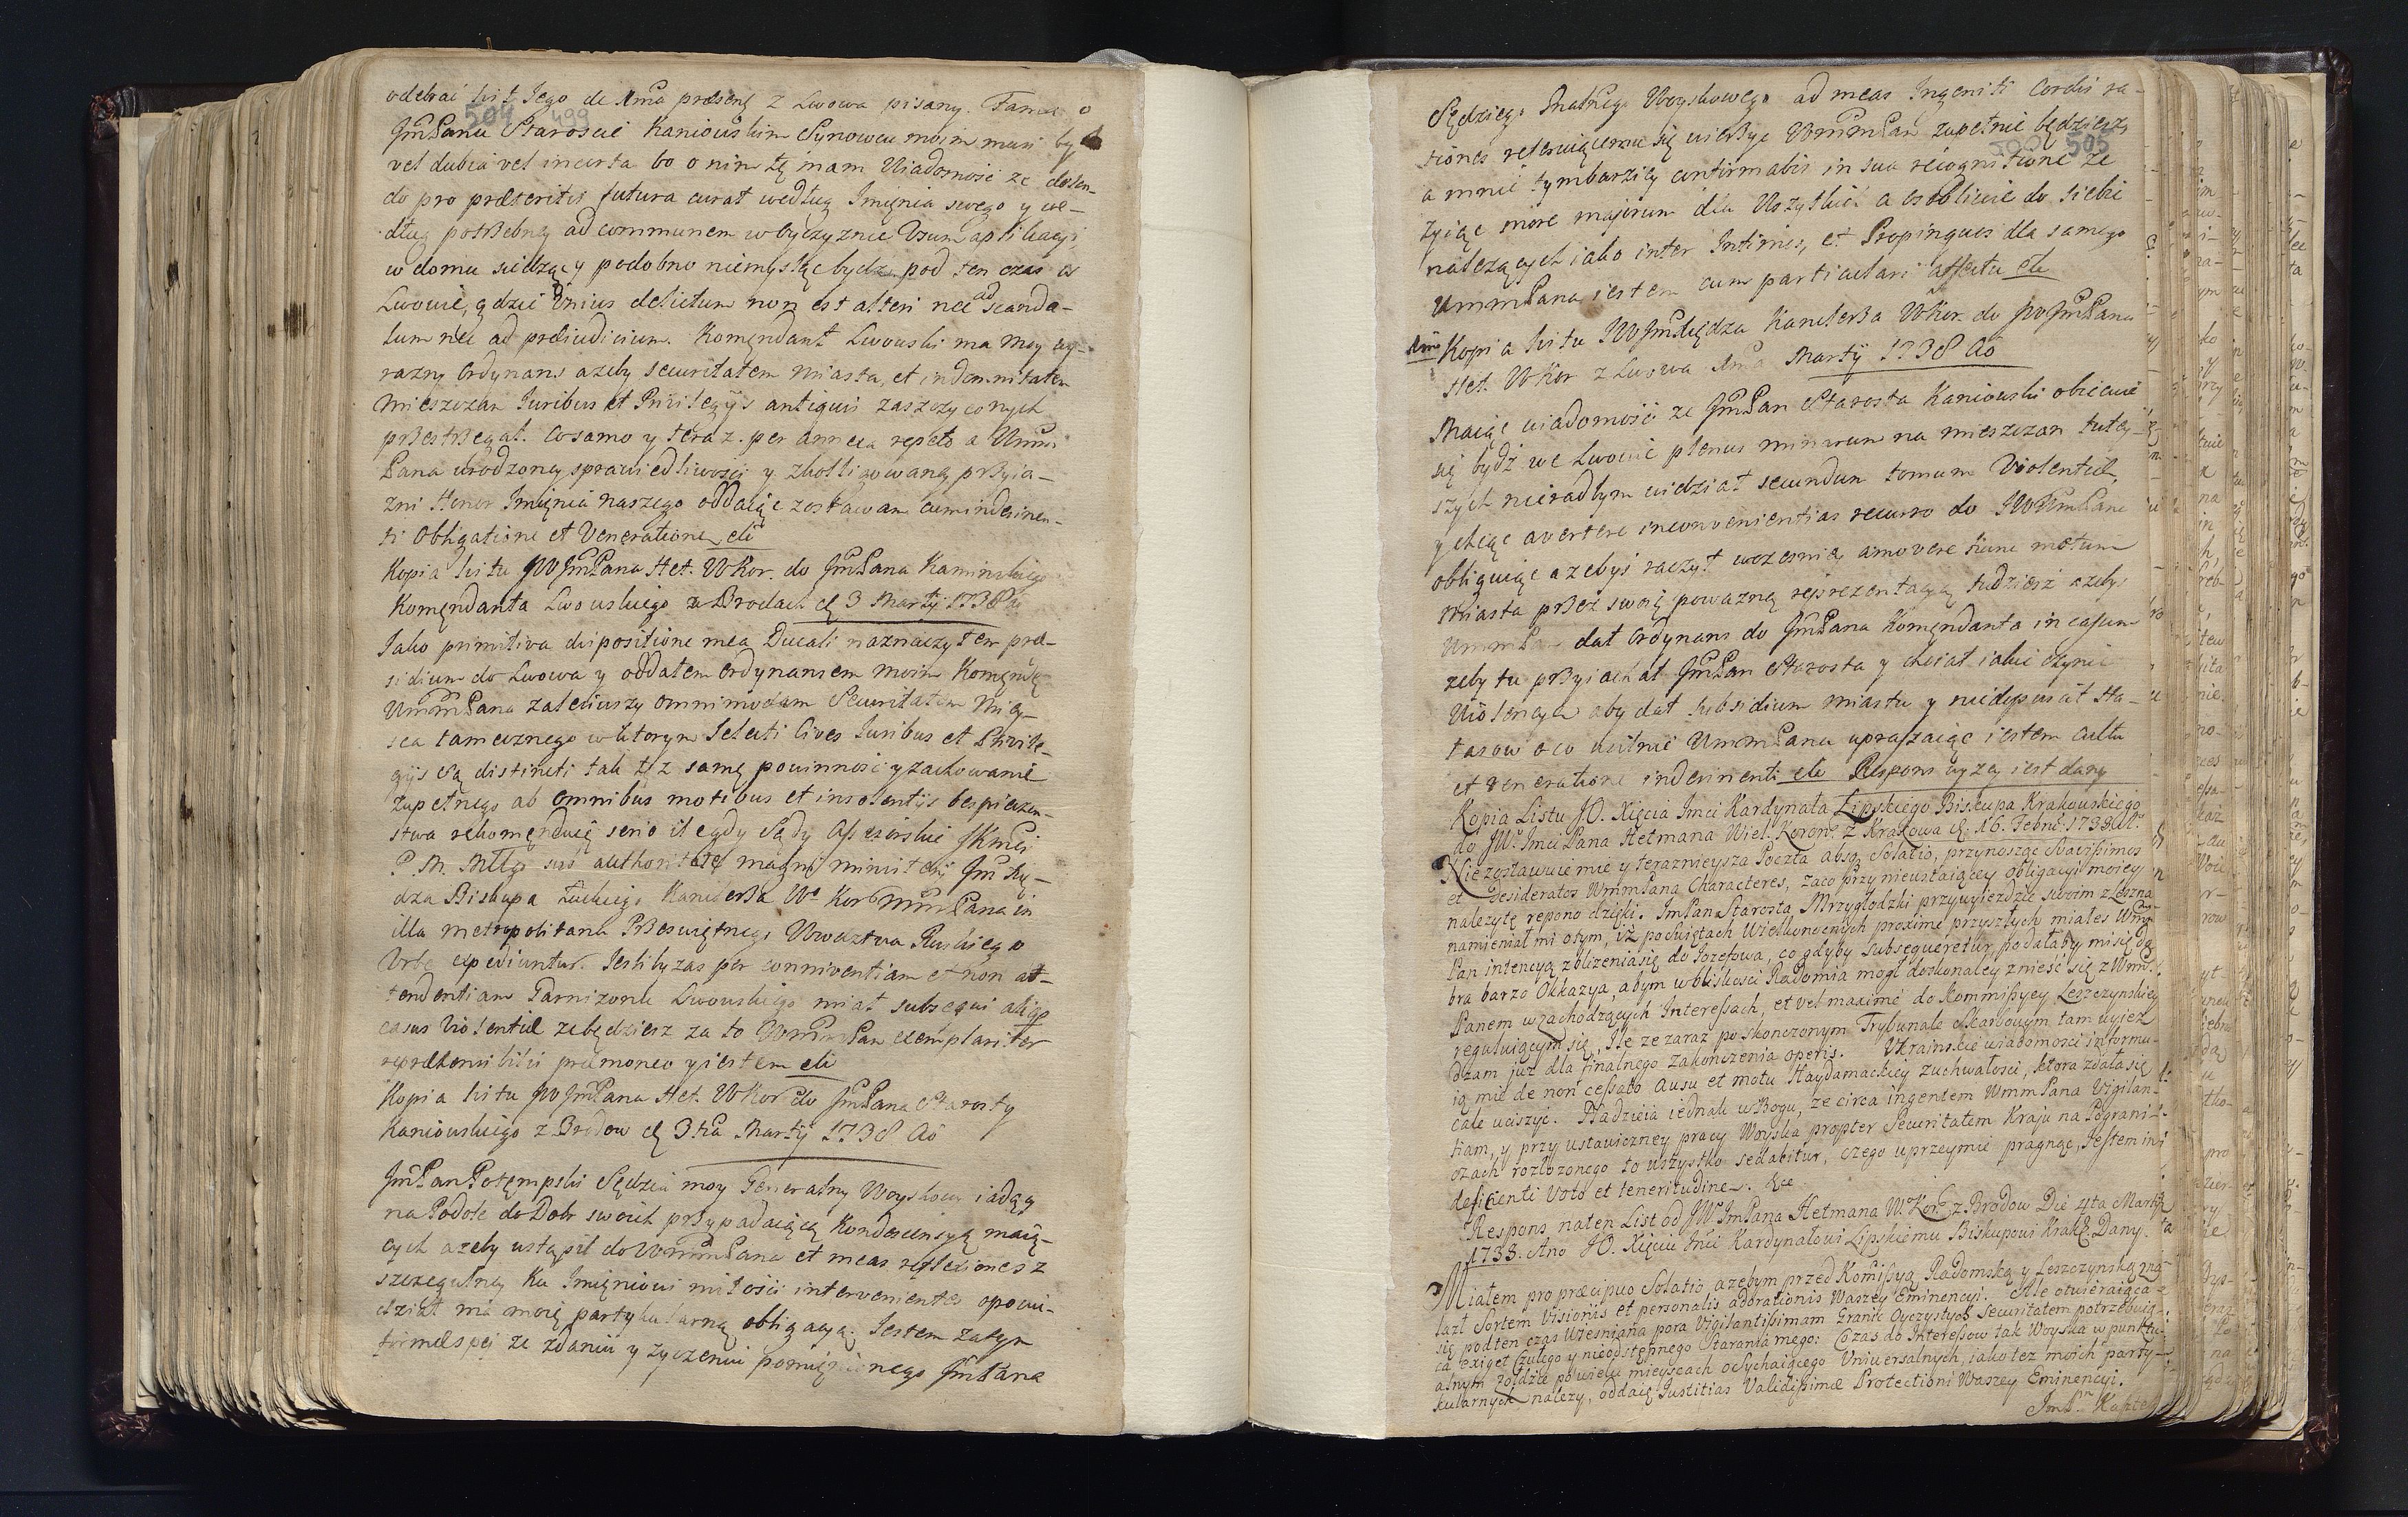 odebrać list Jego de 1ma præsenę z Lwowa pisany. Fama o
504 499
JmPanu Staroscie Kaniowskim Synowcu moim musi być
vel dubia vel incerta bo o nim tę mam Wiadomosć ze
do pro præteritis futura curat według Imięnia swego y we-
dług potrzebney ad communem w Oyczyznie Usum aplikacyi
w domu siedzący podobno niemyslący bydź pod ten czas we
Lwowie, gdzie Unius delictum non est alteri nec ad scanda-
lum nec ad præiudicium. Komęndant Lwowski ma moy wy-
razny Ordynans azeby securitatem Miasta, et indemnitatem
Mieszczan Juribus et Privilegijs antiquis zaszczyconych
przestrzegał. Co samo y teraz per annexa repeto a Umm
Pana urodzoney sprawiedliwosci y zkolligowaney przyia-
zni Honor Imięnia naszego oddaiąc zostawam cum indesinen-
ti Obligatione et Veneratione etc
Kopia listu JWJmPana Het. WKor. do JmPana Kaminskiego
Komęndanta Lwowskiego z Brodach d 3 Martij 1738
Jako primitiva dispositione mea Ducali naznaczyłem præ-
sidium do Lwowa y oddałem Ordynansem moim Komęndę
UmmPana zaleciwszy omnimodam Securitatem Miey-
sca tamecznego w ktorym Selecti Cives Juribus et Privile-
gijs są distincti tak też samę powinnosć y zachowanie
zupełnego ab omnibus motibus et insolentijs bespieczen-
stwa rekomęnduię serio ile gdy Sądy Assesorskie JKmci
P. M. Młgo sub authoritate magni ministerij Jm Xię-
dza Biskupa Łuckiego Kanclerza Wo Kor UmmPana in
illa metropolitana Przeswiętnego Wwodztwa Ruskiego
Urbe expediuntur. Jesliby zas per conniventiam et non at-
tendentiam Garnizonu Lwowskiego miał subsequi aliqs
casus Violentiæ zebędziesz za to UmmPan exemplariter
repræhensibilis præmoneo y iestem etc
Kopia listu JWJmPana Het. WKor do JmPana Starosty
Kaniowskiego z Brodow d 3tia Martij 1738 Ao
JmPan Potęmpski Sędzia moy Generalny Woyskowy iadący
na Podole do Dobr swoich przypadaiącą Kondescensyą maią-
cych azeby ustąpił do WmmPana et meas reflexiones z
szczegulney ku Imięniowi miłosci intervenientes opowi-
edział ma moię partykularną obligacyą. Jestem zatym
firmæ spei ze zdaniu y życzeniu pomięnionego JmPana
Sędziego Znacznego Woyskowego ad meas Ingeniti Cordis ra-
500 505
tiones referuiącemu się wierzyc WmmPan zupełnie będziesz
a mnie tymbarziey confirmabis in sua recognitione ze
zyiąc more majorum dla Wszytkich a osobliwie do siebie
nalezących iako inter Intimos, et Propinquos dla samego
UmmPana iestem cum particulari affectu etc
Kopia listu JWJmXiędza Kanclerza WKor. do JWJmPana
Het. WKor z Lwowa 1ma Martij 1738 Ao
Maiąc wiadomosć ze JmPan Starosta Kaniowski obiecuie
się bydź we Lwowie plenus minarum na mieszczan tutey-
szych nieradbym widział secundum tomum Violentiæ,
y chcąc avertere inconvenientias recurro do JWUmmPana
obliguiąc azebyś raczył wczesniey amovere hunc motum
Miasta przez swoię powazną reprezentacyą tudziesz azebyś
UmmPan dał Ordynans do JmPana Komęndanta in casum
zeby tu przyiachał JmPan Starosta y chciał iakie czynić
Violencye aby dał subsidium miastu y niedopuscił Ha-
łasow o co usilnie UmmPana upraszaiąc iestem cultu
et veneratione indesinenti etc Respons wyzey iest dany
Kopia Listu JO. Xięcia Jmci Kardynała Lipskiego Biskupa Krakowskiego
do JWo JmciPana Hetmana Wiel. Koronn. z Krakowa d. 16. Febru. 1738. Ao.
Niezostawuie mie y teraznieysza Poczta absq. Solatio, przynosząc Suavissimos
et Desideratos WmmPana Characteres, zaco przy nieustaiącey obligacyi moiey
nalezytę repono dzięki. ImPan Starosta Mrzygłodzki przywyiezdzie swoim z Leszna
namieniał mi otym, iż poświętach Wielkonocnych proxime przyszłych miałes Wmm
Pan intencyą zblizeniasię do Iozefowa, co gdyby subsequeretur, podałaby misię do
bra barzo Okkazya, abym wbliskosci Radomia mogł doskonaley znieść się z Wmm
Panem w zachodzących Interessach, et vel maximé do Kommissyey Leszczynskiey
reguluiącym się, Ile ze zaraz po skonczonym Trybunale Skarbowym tam wyiez
dzam już dla finalnego zakonczenia operis. Ukrainskie wiadomosci informu-
ią mię de non cessato Ausu et motu Haydamackiey zuchwałosci, ktora zdała się
cale uciszyć. Nadzieia iednak w Bogu, ze circa ingentem WmmPana Vigilan-
tiam, y przy ustawiczney pracy Woyska propter Securitatem Kraju na Pograni-
czach rozłozonego to wszystko sedabitur, czego uprzeymie pragnąc, Jestem in
deficienti Voto et teneritudine. &ce
Respons naten List od JWo ImPana Hetmana W. Kor. z Brodow Die 4ta Martij
1738. Ano JO. Xięciu Jmci Kardynałowi Lipskiemu Biskupowi Krakk. Dany.
Miałem pro præcipuo Solatio, azebym przed Komissyą Radomską y Leszczynską zna-
lazł Sortem Visionis et personalis adorationis Waszey Eminencyi. Ale otwieraiąca
się podten czas Wiesniana pora Vigilantissimam Granic Oyczystych Securitatem potrzebuią-
ca exiget czułego y nieodstępnego Starania mego: Co zas do Interessow tak Woyska w punktu-
alnym zołdzie powielu mieyscach ociychaiącego Universalnych, iako tez moich party-
kularnych nalezy, oddaię Justitias Validissimæ Protectioni Waszey Eminencyi.